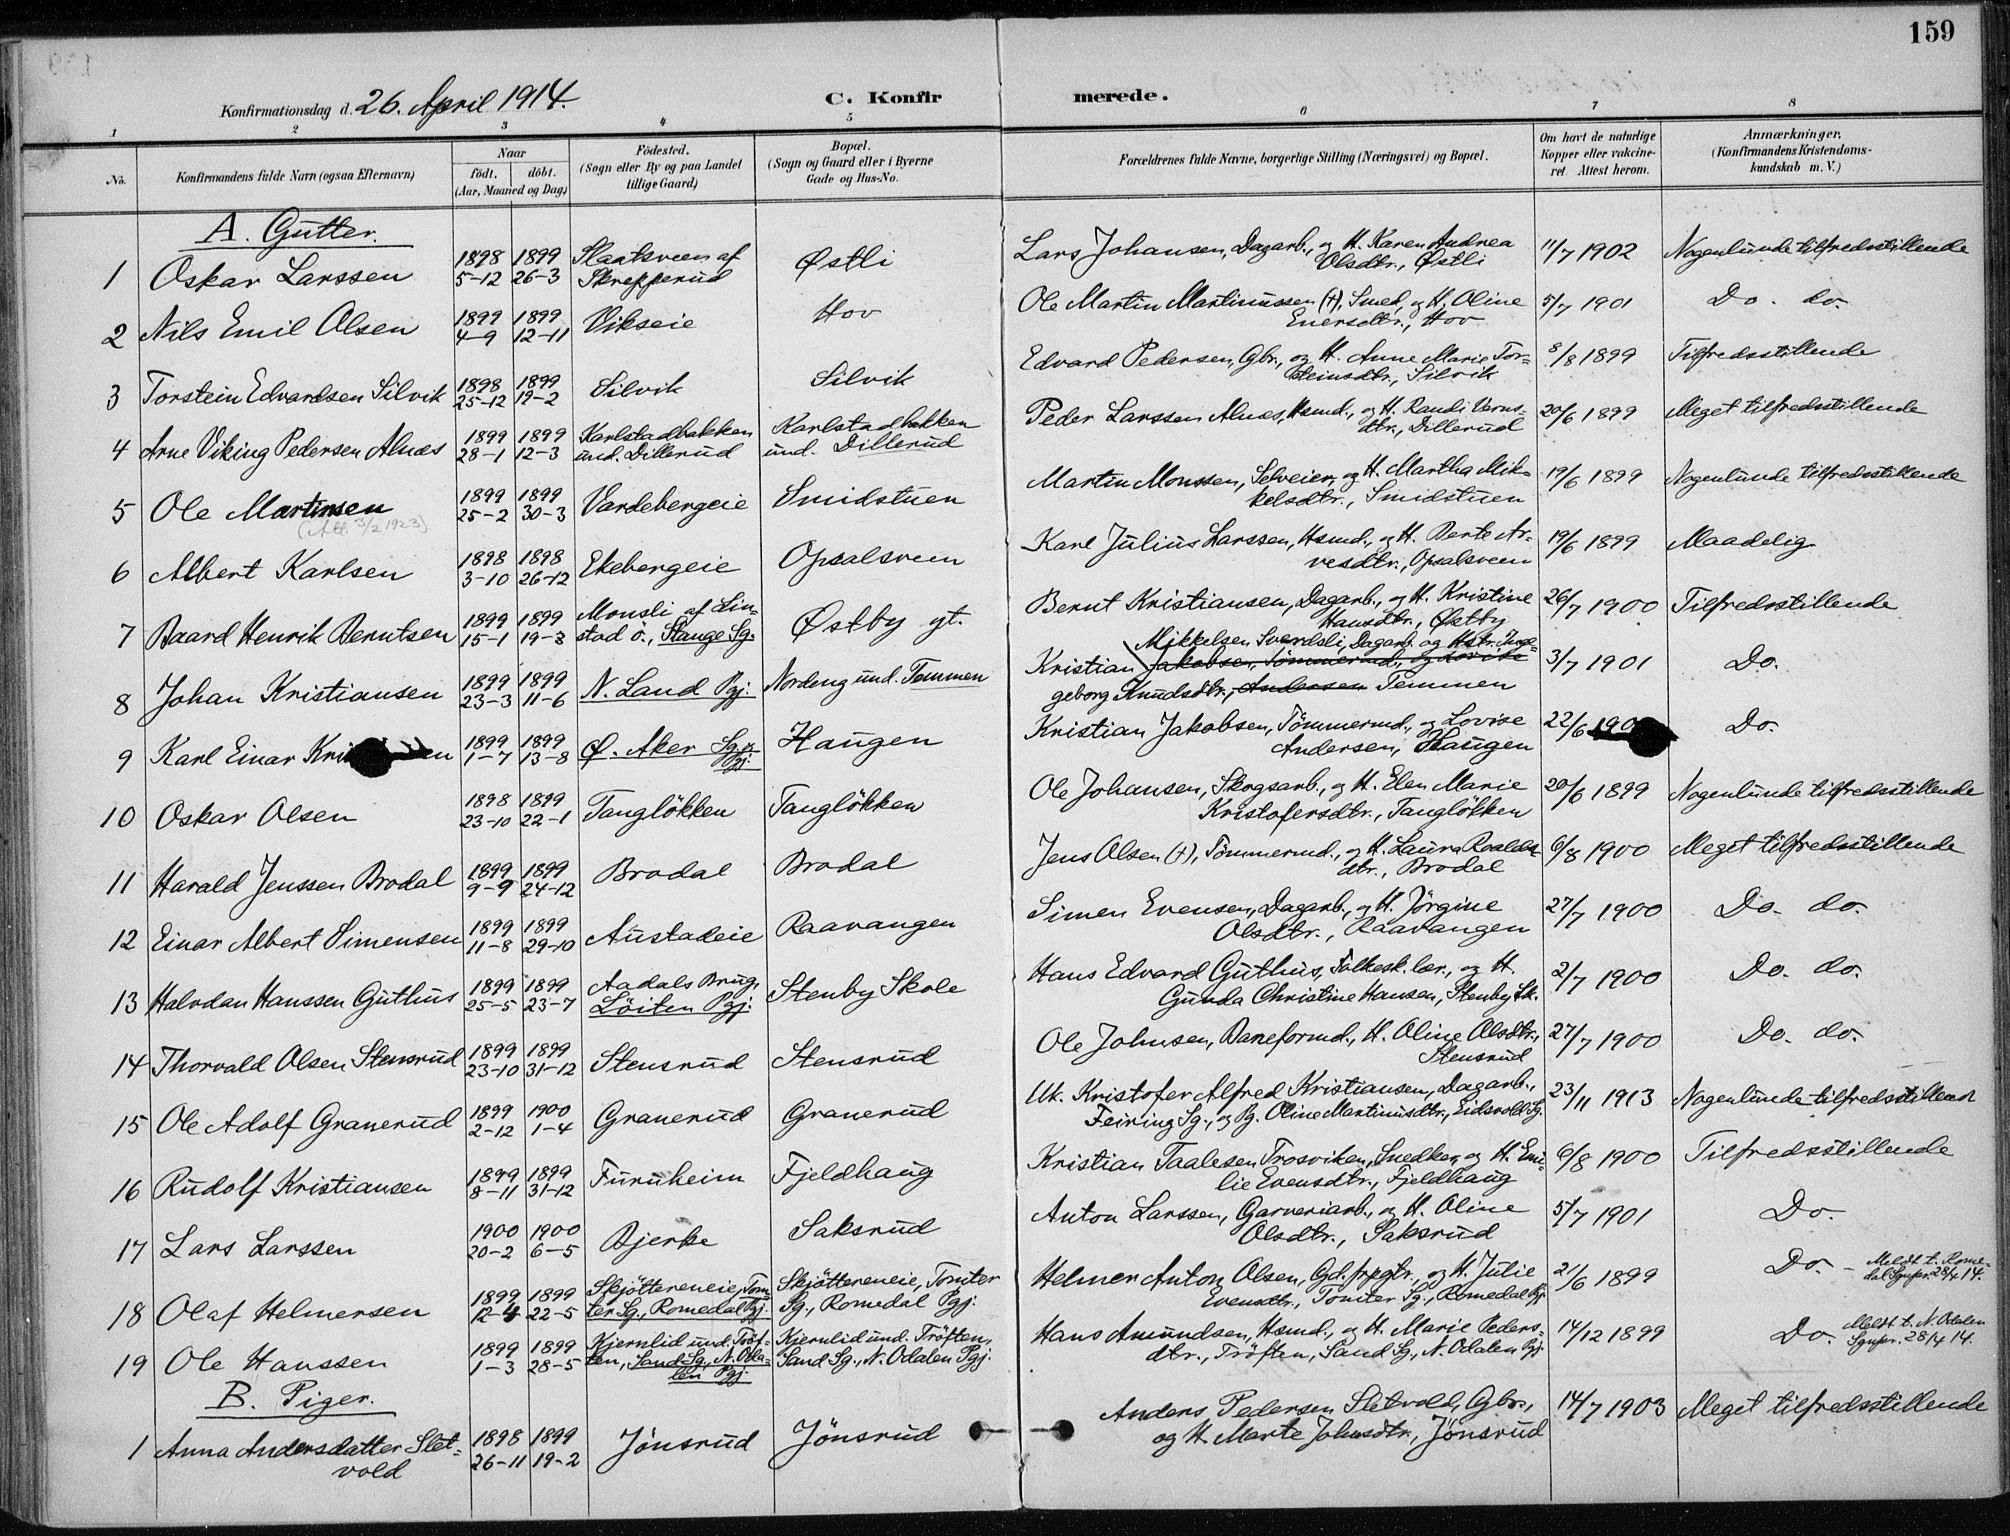 159
Konfirmationsdag d. 26. April 1914.
C. Konfirmerede.
1 2 3 4 5 6 7 8
No.
Konfirmandens fulde Navn (ogsaa Efternavn)
Naar
födt. döbt.
(Aar, Maaned og Dag)
Födested.
(Sogn eller By og paa Landet
tillige Gaard)
Bopæl.
(Sogn og Gaard eller i Byerne
Gade og Hus-No.
Forældrenes fulde Navne, borgerlige Stilling (Næringsvei) og Bopæl.
Om havt de naturlige
Kopper eller vakcine-
ret Attest herom.
Anmærkninger.
(Konfirmandens Kristendoms-
kundskab m. V.)
A. Gutter.
1 Oskar Larssen 1898 5-12 1899 26-3 Slaatsveen af Skrepperud Østli Lars Johansen, Dagarb., og H. Karen Andrea Olsdtr., Østli 11/7 1902 Nogenlunde tilfredsstillende
2 Nils Emil Olsen 1899 4-9 1899 12-11 Vikseie Hov Ole Martin Martinussen (†), Smed, og H. Oline Enersdtr., Hov 5/7 1901 Do. do.
3 Torstein Edvardsen Silvik 1898 25-12 1899 19-2 Silvik Silvik Edvard Pedersen, Gbr., og H. Anne Marie Torsteinsdtr., Silvik 8/8 1899 Tilfredsstillende
4 Arne Viking Pedersen Alnæs 1899 28-1 1899 12-3 Karlstadbakken und. Dillerud Karlstadbakken und. Dillerud Peder Larssen Alnæs, Hsmd., og H. Randi Verns-dtr., Dillerud 20/6 1899 Meget tilfredsstillende
5 Ole Martinsen (Att. 3/2 1923) 1899 25-2 1899 30-3 Vardebergeie Smidstuen Martin Monssen, Selveier, og H. Martha Mikkelsdtr., Smidstuen 19/6 1899 Nogenlunde tilfredsstillende
6 Albert Karlsen 1898 3-10 1898 26-12 Ekebergeie Opsalsveen Karl Julius Larssen, Hsmd., og H. Berte Arvesdtr., Opsalsveen 19/6 1899 Maadelig
7 Baard Henrik Berntsen 1899 15-1 1899 19-3 Monsli af Linstad ö., Stange Sg. Østby yt. Bernt Kristiansen, Dagarb., og H. Kristine Hansdtr., Østby 26/7 1900 Tilfredsstillende
8 Johan Kristiansen 1899 23-3 1899 11-6 N. Land Pgj. Nordeng und. Temmen Mikkelsen Sverdsli, Dagarb. og Hstr. Inge-
Kristian Jakobsen, Tömmermd., og Lovise
geborg Knudsdtr., Andersen Temmen 3/7 1901 Do.
9 Karl Einar 1899 1-7 1899 13-8 Ø. Aker Sg. & Pgj. Haugen Kristian Jakobsen, Tømmermd., og Lovise Andersen, Haugen 22/6 Do.
10 Oskar Olsen 1898 23-10 1899 22-1 Tangløkken Tangløkken Ole Johansen, Skogsarb., og H. Elen Marie Kristofersdtr., Tangløkken 20/6 1899 Nogenlunde tilfredsstillende
11 Harald Jenssen Brodal 1899 9-9 1899 24-12 Brodal Brodal Jens Olsen (†), Tømmermd., og H. Laura Roaldsdtr., Brodal 6/8 1900 Meget tilfredsstillende
12 Einar Albert Simensen 1899 11-8 1899 29-10 Austadeie Raavangen Simen Evensen, Dagarb., og H. Jörgine Olsdtr., Raavangen 27/7 1900 Do. do.
13 Halvdan Hanssen Guthus 1899 25-5 1899 23-7 Aadals Brug, Löiten Pgj. Stenby Skole Hans Edvard Guthus, Folkesk.lær., og H. Gunda Christine Hansen, Stenby Sk. 2/7 1900 Do. do.
14 Thorvald Olsen Stensrud 1899 23-10 1899 31-12 Stensrud Stensrud Ole Johnsen, Baneformd., H. Oline Olsdtr., Stensrud 27/7 1900 Do. do.
15 Ole Adolf Granerud 1899 2-12 1900 1-4 Granerud Granerud Uk. Kristofer Alfred Kristiansen, Dagarb., Feiring Sg., og Pg. Oline Martinusdtr., Eidsvold Sg. 23/11 1913 Nogenlunde tilfredsstillend
16 Rudolf Kristiansen 1899 8-11 1899 31-12 Furuheim Fjeldhaug Kristian Taalesen Trosviken, Snedker, og H. Emilie Evensdtr., Fjeldhaug 6/8 1900 Tilfredsstillende
17 Lars Larssen 1900 20-2 1900 6-5 Bjerke Saksrud Anton Larssen, Garveriarb., og H. Oline Olsdtr., Saksrud 5/7 1901 Do.
18 Olaf Helmersen 1899 12-4 1899 22-5 Skjöttereneie, Tomter Sg., Romedal Pgj. Skjöttereneie, Tomter Sg., Romedal Pgj. Helmer Anton Olsen, Gd.frpgtr., og H. Julie Evensdtr., Tomter Sg., Romedal Pgj. 21/6 1899 Do. - Meldt t. Romedal Sgnpr. 28/4 14.
19 Ole Hanssen 1899 1-3 1899 28-5 Kjernlid und. Tröften, Sand Sg., N. Odalen Pgj. Kjernlid und. Tröften, Sand Sg., N. Odalen Pgj. Hans Amundsen, Hsmd., og H. Marie Pedersdtr., Tröften, Sand Sg., N. Odalen Pgj. 14/12 1899 Do. Meldt t. N. Odalen Sgnpr. 28/4 14.
B. Piger.
1 Anna Andersdatter Sletvold 1898 26-11 1899 19-2 Jönsrud Jönsrud Anders Pedersen Sletvold, Gbr., og H. Marte Johnsdtr., Jönsrud 14/7 1903 Meget tilfredsstillende